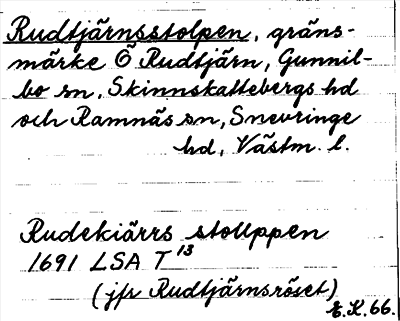 Rudtjärnsstolpen, gräns-
märke Ö Rudtjärn, Gunnil-
bo sn, Skinnskattebergs hd
och Ramnäs sn, Snevringe
hd, Västm. l.
Rudekiärrs stollppen
1691 LSA T¹³
(jfr Rudtjärnsröset)
E.K. 66.